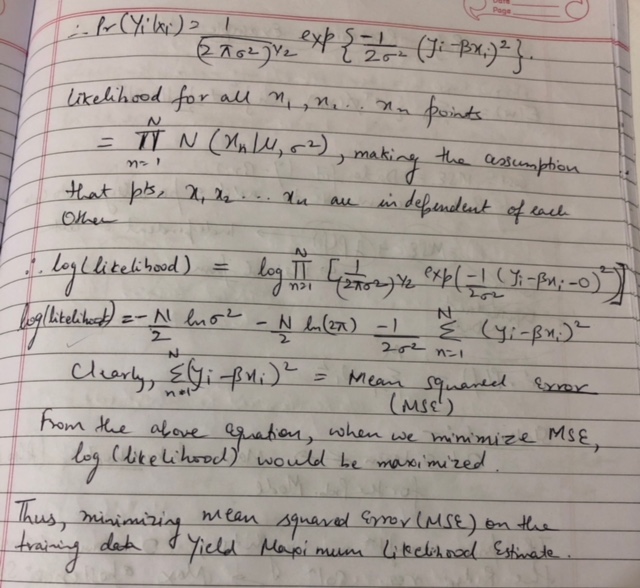 ∴ Pr(yi|xi) = 1/(2πσ²)^1/2 exp{-1/2σ² (yi-βxi)²}.
Likelihood for all x1, x1... xn points
= N∏n=1 N(xn|μ, σ²), making the assumption
that pts, x1 x2 ... xn are independent of each
Other
∴ log(likelihood) = log N∏n=1 [1/(2πσ²)^1/2 exp(-1/2σ² (yi-βxi-0)²)]
log(likelihood) = -N/2 ln σ² - N/2 ln(2π) -1/2σ² N∑n=1 (yi-βxi)²
Clearly, N∑n=1 (yi-βxi)² = Mean Squared Error
(MSE)
From the above equation, when we minimize MSE,
log(likelihood) would be maximized.
Thus, minimizing mean squared Error (MSE) on the
training data Yield Maximum Likelihood Estimate.